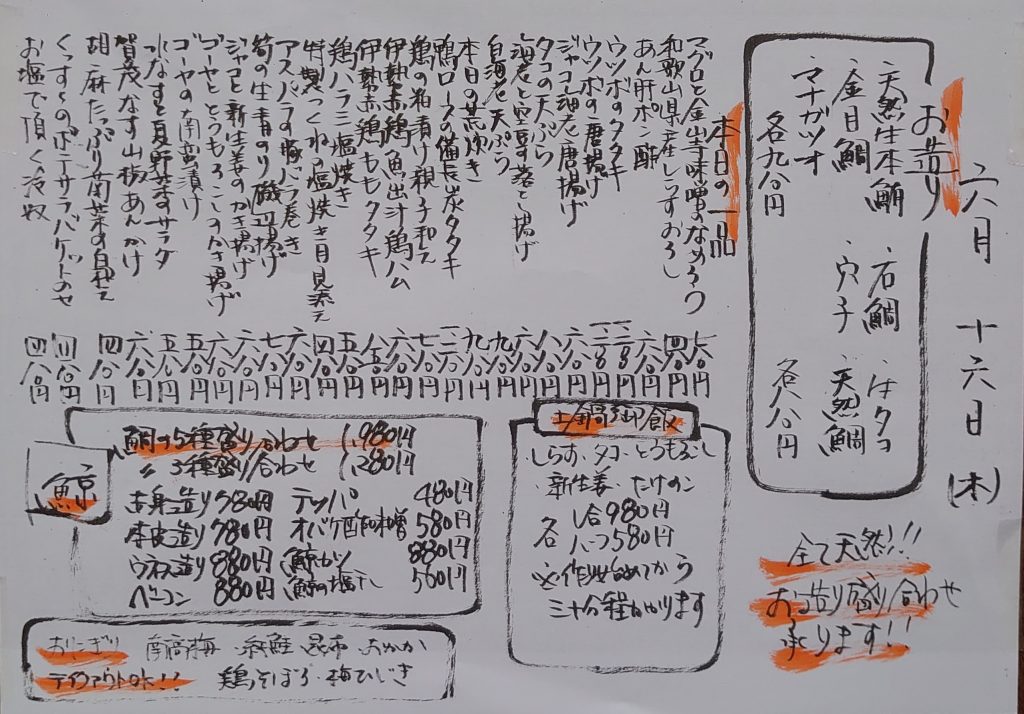 六月 十六日 (木)
お造り
・天然生本鮪 ・石鯛 ・活タコ
・金目鯛 ・穴子 ・天然鯛
・マナガツオ
各九八〇円 各八八〇円
全て天然!!!
お造り盛り合わせ
承ります!!
本日の一品
マグロと金山寺味噌のなめろう 七八〇円
和歌山県産生しらすおろし 四八〇円
あん肝ポン酢 六八〇円
ウツボのタタキ
ウツボの唐揚げ
ジャコ海老唐揚げ 六八〇円
タコの天ぷら 八八〇円
海老と空豆の落とし揚げ 六八〇円
白海老天ぷら 九八〇円
本日の荒炊き 九八〇円
鴨ロースの備長炭タタキ
鶏の粕漬け親子和え
伊勢赤鶏 魚出汁鶏ハム
伊勢赤鶏ももタタキ
鶏ハラミ塩焼き
特製つくねの塩焼き目見添え
アスパラの豚バラ巻き
筍の生青のり磯辺揚げ
ジャコと新生姜のかき揚げ
ゴーヤととうもろこしのかき揚げ
ゴーヤの南蛮漬け
水なすと夏野菜のサラダ
賀茂なす山椒あんかけ 六八〇円
胡麻たっぷり菊菜の白和え 四八〇円
くっすんのポテサラバケットのせ 四八〇円
お塩で頂く冷奴 四八〇円
土鍋御飯
・しらす・タコ・とうもろこし
・新生姜・たけのこ
各 一合980円
ハーフ580円
※作り始めてから
三十分程かかります
鯨
鯨の5種盛り合わせ 1,980円
〃 3種盛り合わせ 1,280円
赤身造り 980円 テッパ 480円
本皮造り 780円 オバケ酢味噌 580円
ウネス造り 880円 鯨カツ 880円
ベーコン 880円 鯨の塩干し 580円
おにぎり 南高梅・紅鮭・昆布・おかか
テイクアウトOK!! 鶏そぼろ・梅ひじき